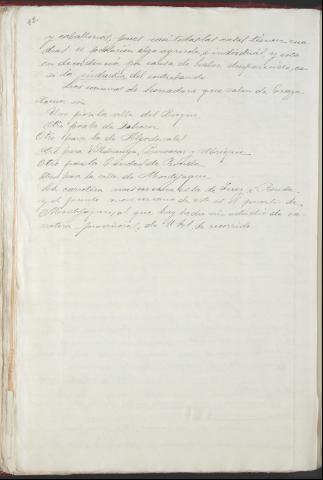 y caballerias, pues casi todas las casas tienen cua
dras. Su poblacion algo agricola, e industrial y esta
en decadencia por causa de haber desaparecido, ca
si la industria del contrabando
Los caminos de herradura que salen de Graza
lema son
Uno para la villa del Bosque
Otro para la de
Otro para la de Algodonales
Otro para Villaluenga, Benaocaz y Ubrique
Otro para la Ciudad de Ronda
Otro para la villa de Montejaque
La carretera mas cercana es la de Jerez a Ronda
y el punto mas cercano de esta es el puente de
Montejaque, al que hay hecho un estudio de ca
rretera provincial, de 11 kil. de recorrido